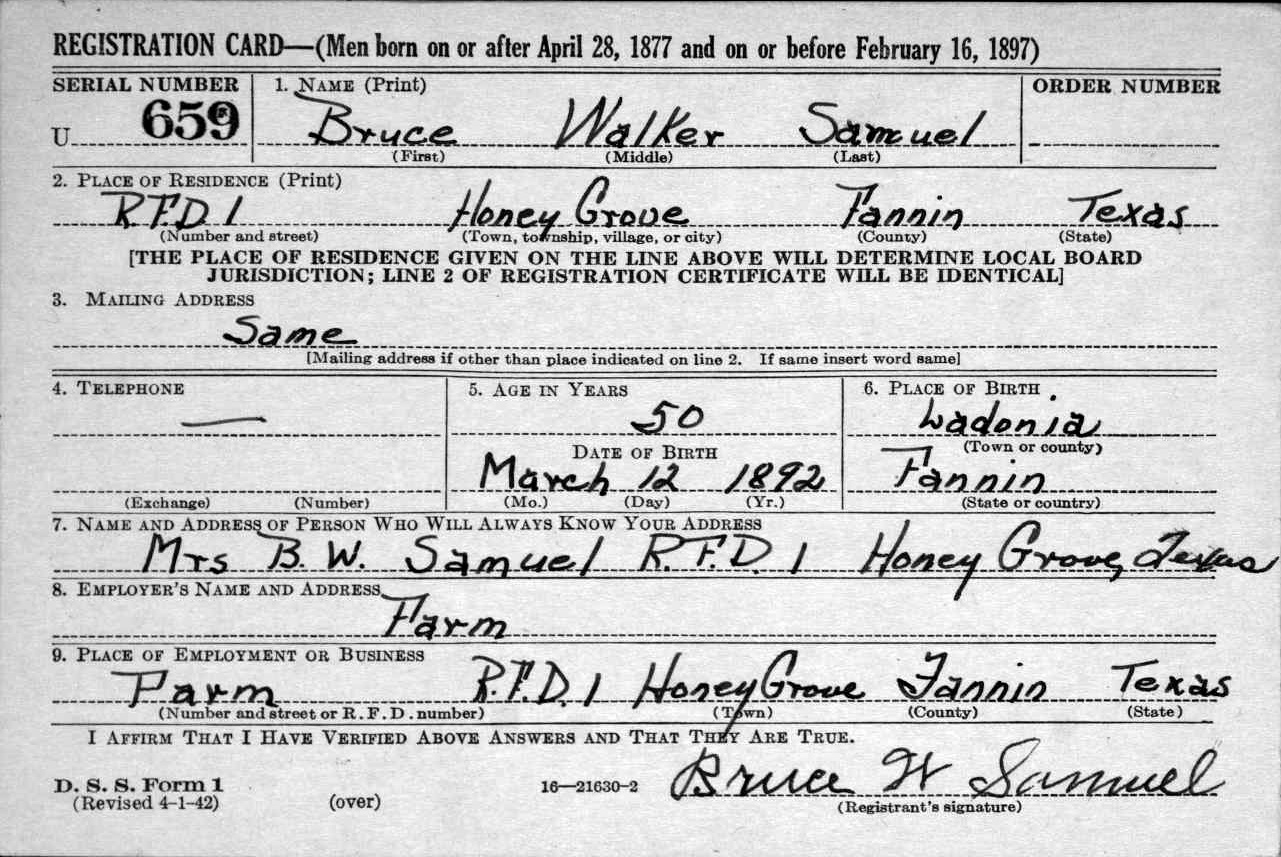 REGISTRATION CARD—(Men born on or after April 28, 1877 and on or before February 16, 1897)
SERIAL NUMBER
1. NAME (Print)
ORDER NUMBER
U 659
Bruce Walker Samuel
(First) (Middle) (Last)
2. PLACE OF RESIDENCE (Print)
R.F.D 1 Honey Grove Fannin Texas
(Number and street) (Town, township, village, or city) (County) (State)
[THE PLACE OF RESIDENCE GIVEN ON THE LINE ABOVE WILL DETERMINE LOCAL BOARD
JURISDICTION; LINE 2 OF REGISTRATION CERTIFICATE WILL BE IDENTICAL]
3. MAILING ADDRESS
Same
[Mailing address if other than place indicated on line 2. If same insert word same]
4. TELEPHONE
—
(Exchange) (Number)
5. AGE IN YEARS
50
DATE OF BIRTH
March 12 1892
(Mo.) (Day) (Yr.)
6. PLACE OF BIRTH
Ladonia
(Town or county)
Fannin
(State or country)
7. NAME AND ADDRESS OF PERSON WHO WILL ALWAYS KNOW YOUR ADDRESS
Mrs B. W. Samuel R.F.D. 1 Honey Grove, Texas
8. EMPLOYER'S NAME AND ADDRESS
Farm
9. PLACE OF EMPLOYMENT OR BUSINESS
Farm R.F.D. 1 Honey Grove Fannin Texas
(Number and street or R. F. D. number) (Town) (County) (State)
I AFFIRM THAT I HAVE VERIFIED ABOVE ANSWERS AND THAT THEY ARE TRUE.
Bruce W Samuel
D. S. S. Form 1
(Revised 4-1-42) (over)
16—21630-2
(Registrant's signature)